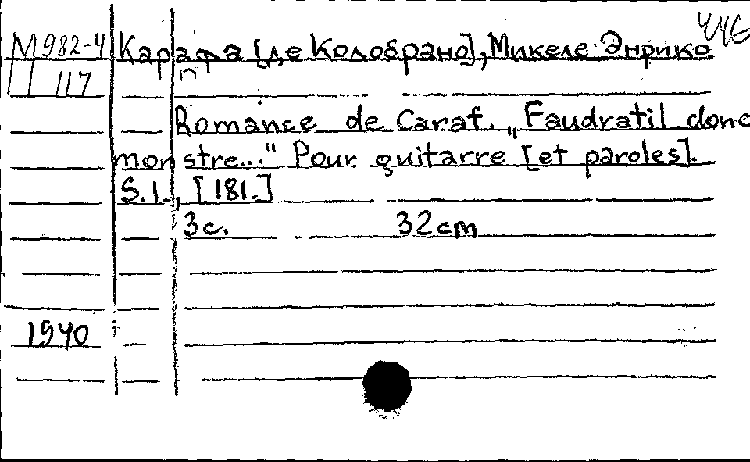 446
М982-4 Карафа [де Колобрано], Микеле Энрико
117
Romance de Caraf. „Faudratil donc
mon stre..." Pour guitarre [et paroles].
S.l., [181.]
3с. 32cm
1940